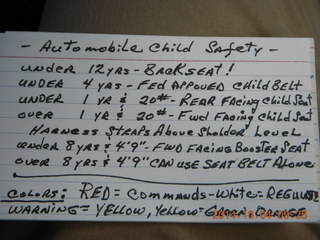 - Automobile Child Safety -
under 12 yrs - Back seat!
under 4 yrs - Fed Appoved Child Belt
under 1 yr & 20# - Rear Facing Child Seat
over 1 yr & 20# - Fwd Facing Child Seat
Harness Straps Above Sholder Level
under 8 yrs & 4'9" - Fwd Facing Booster Seat
over 8 yrs & 4'9" can use seat belt Alone
Colors: Red = Commands - White =
Warning = Yellow, Yellow-Green, Orange